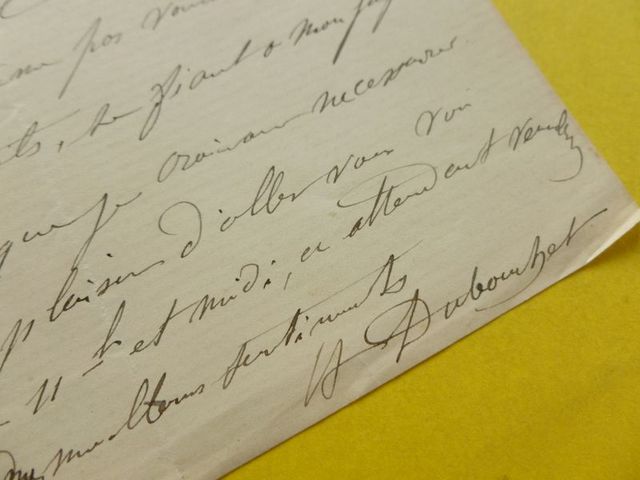 pas
se fiant a mon
que je croirais necessaire
plaisir d'aller vous voir
11 h et midi, en attendant
meilleurs sentiments
H Dubouchet